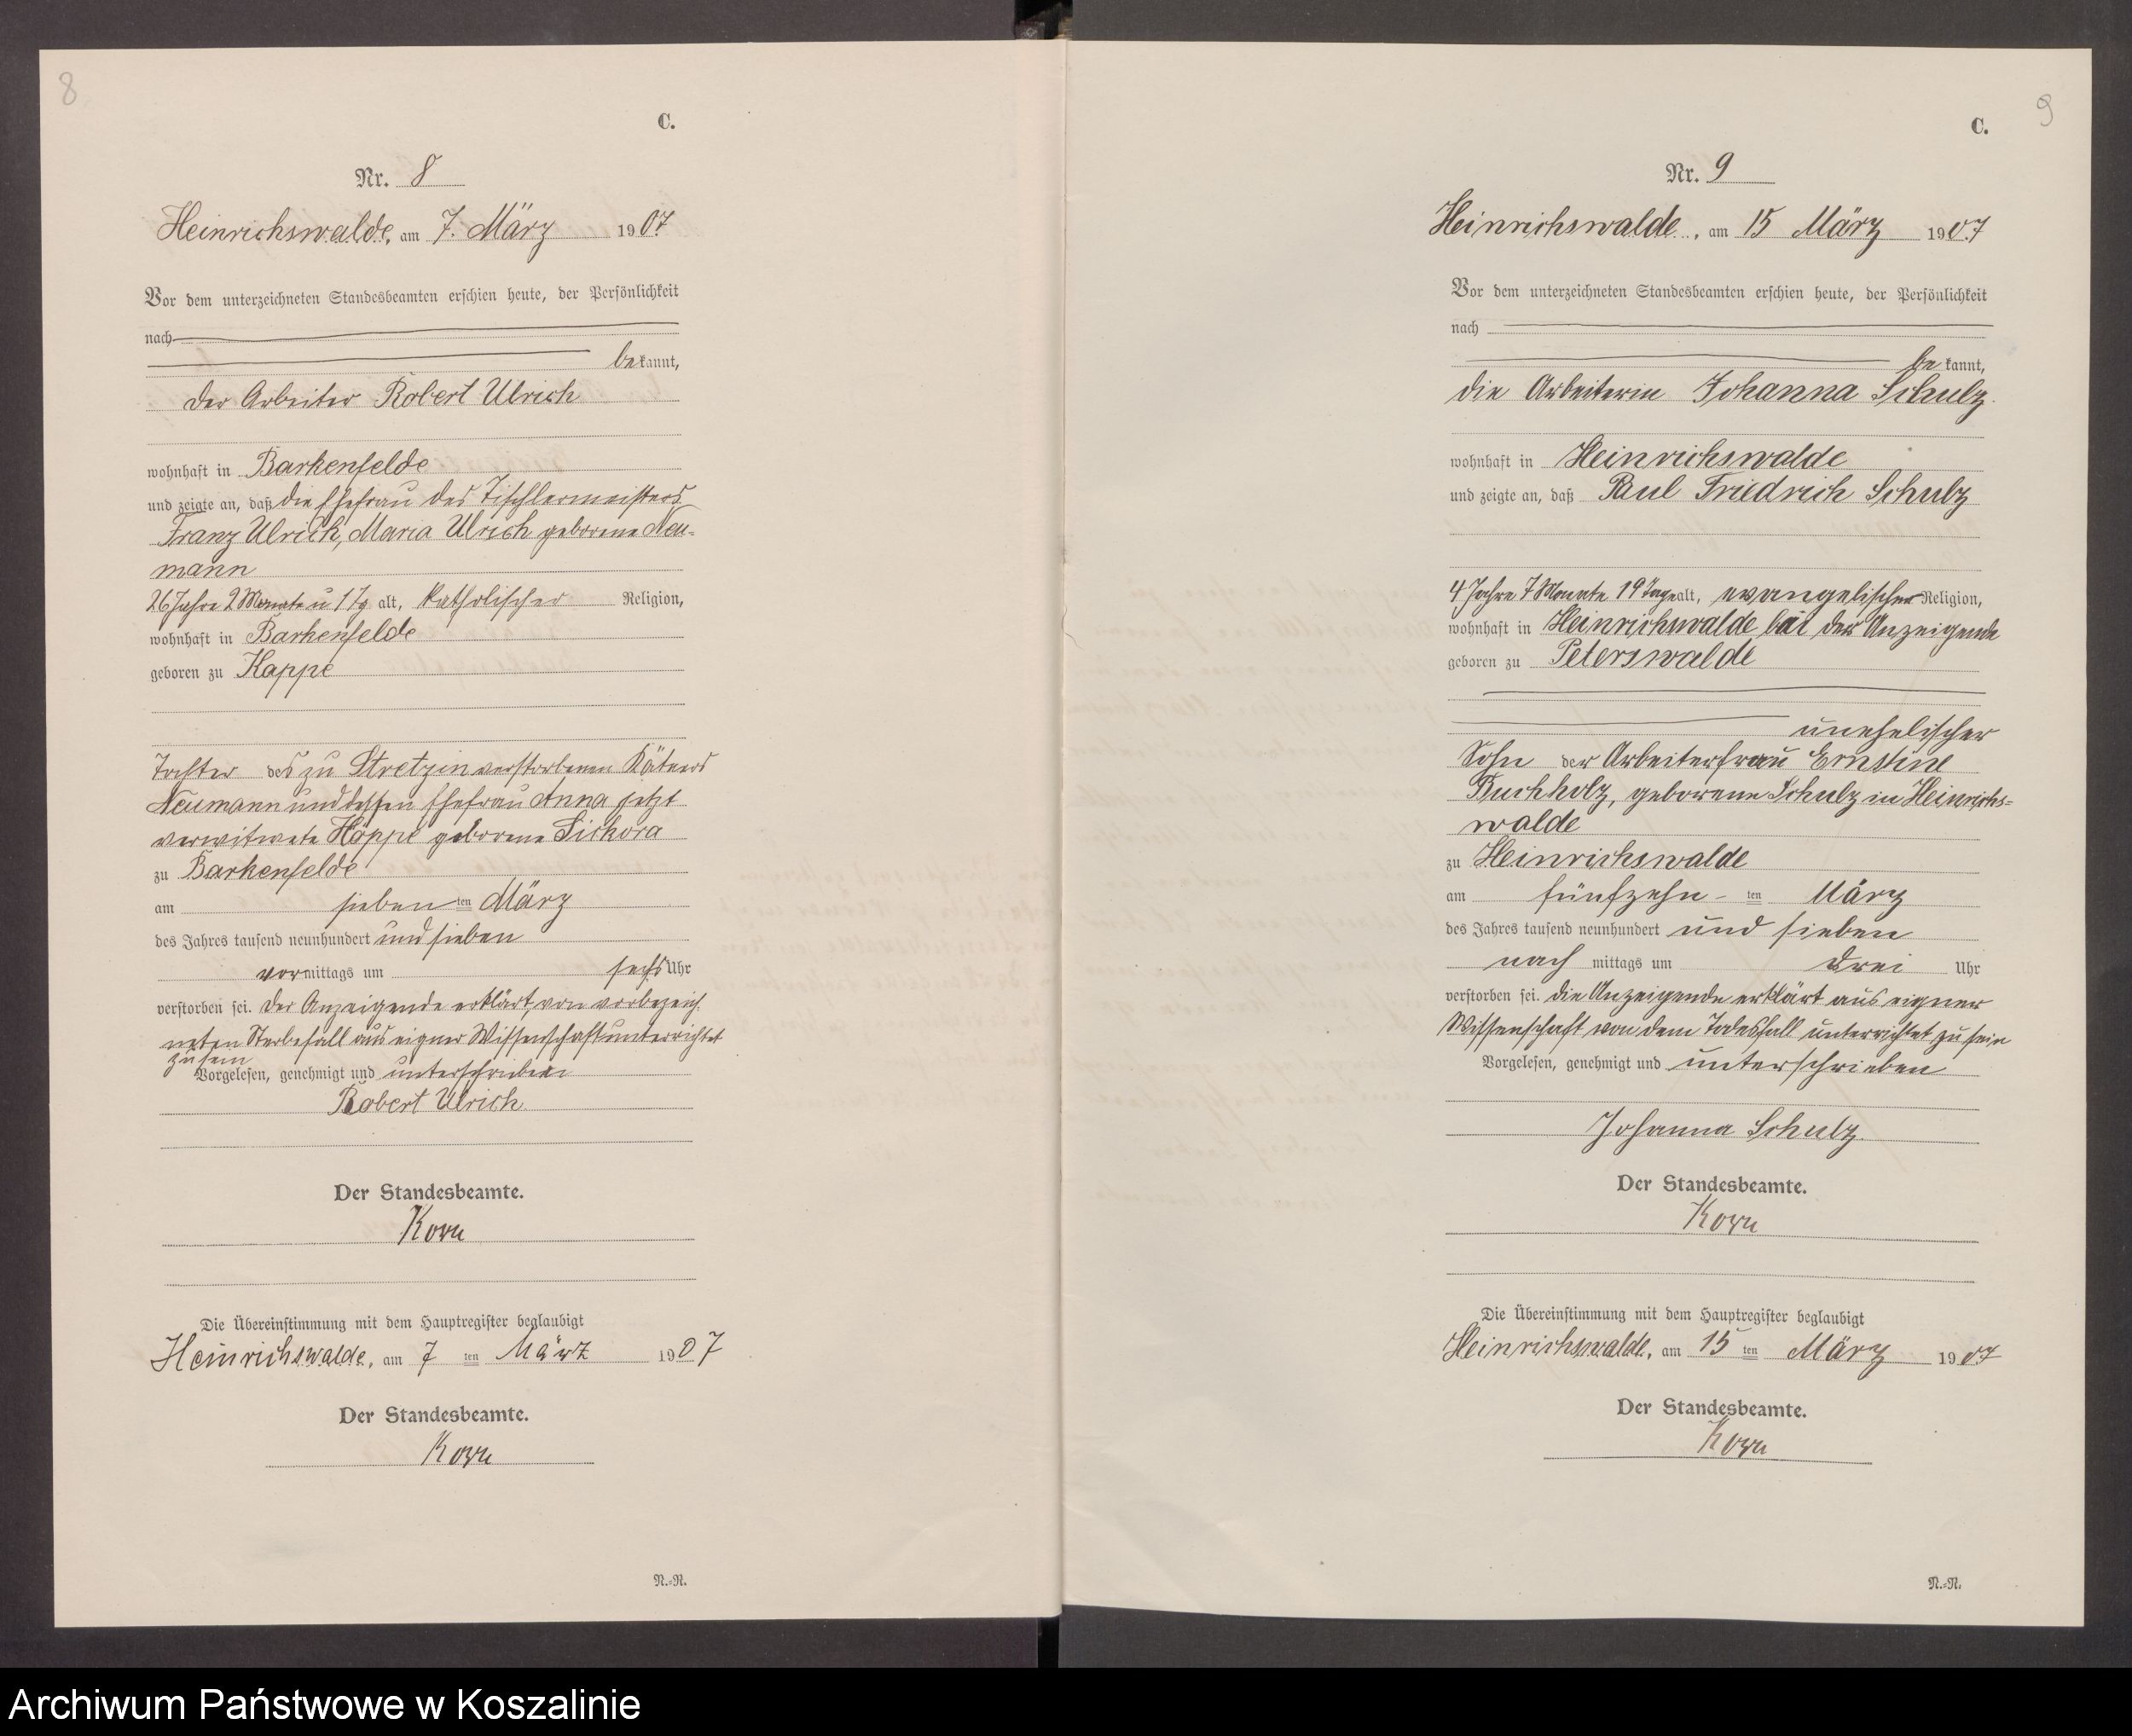 8
C.
Nr. 8
Heinrichswalde, am 7. März 1907
Vor dem unterzeichneten Standesbeamten erschien heute, der Persönlichkeit
nach
bekannt,
der Arbeiter Robert Ulrich
wohnhaft in Barkenfelde
und zeigte an, daß die Ehefrau des Tischlermeisters
Franz Ulrich, Maria Ulrich geborene Neu-
mann
26 Jahre 2 Monate u 1 Tg alt, katholischer Religion,
wohnhaft in Barkenfelde
geboren zu Kappe
Tochter des zu Stretzin verstorbenen Kätners
Neumann und dessen Ehefrau Anna jetzt
verwitwete Höppe geborene Sichora
zu Barkenfelde
am sieben ten März
des Jahres tausend neunhundert und sieben
vormittags um sechs Uhr
verstorben sei. Der Anzeigende erklärt, von vorbezeich-
neten Sterbefall aus eigner Wissenschaft unterrichtet
zu sein
Vorgelesen, genehmigt und unterschrieben
Robert Ulrich
Der Standesbeamte.
Korn
Die Übereinstimmung mit dem Hauptregister beglaubigt
Heinrichswalde, am 7 ten März 1907
Der Standesbeamte.
Korn
N.=N.
9
C.
Nr. 9
Heinrichswalde, am 15 März 1907
Vor dem unterzeichneten Standesbeamten erschien heute, der Persönlichkeit
nach
bekannt,
die Arbeiterin Johanna Schulz.
wohnhaft in Heinrichswalde
und zeigte an, daß Paul Friedrich Schulz
4 Jahre 7 Monate 19 Tage alt, evangelischer Religion,
wohnhaft in Heinrichswalde bei der Anzeigende
geboren zu Peterswalde
unehelischer
Sohn der Arbeiterfrau Ernstine
Buchholz, geborenen Schulz in Heinrichs=
walde
zu Heinrichswalde
am fünfzehn- ten März
des Jahres tausend neunhundert und sieben
nach mittags um drei Uhr
verstorben sei. Die Anzeigende erklärt aus eigner
Wissenschaft von dem Todesfall unterrichtet zu sein
Vorgelesen, genehmigt und unterschrieben
Johanna Schulz.
Der Standesbeamte.
Korn
Die Übereinstimmung mit dem Hauptregister beglaubigt
Heinrichswalde, am 15 ten März 1907
Der Standesbeamte.
Korn
N.=N.
Archiwum Państwowe w Koszalinie